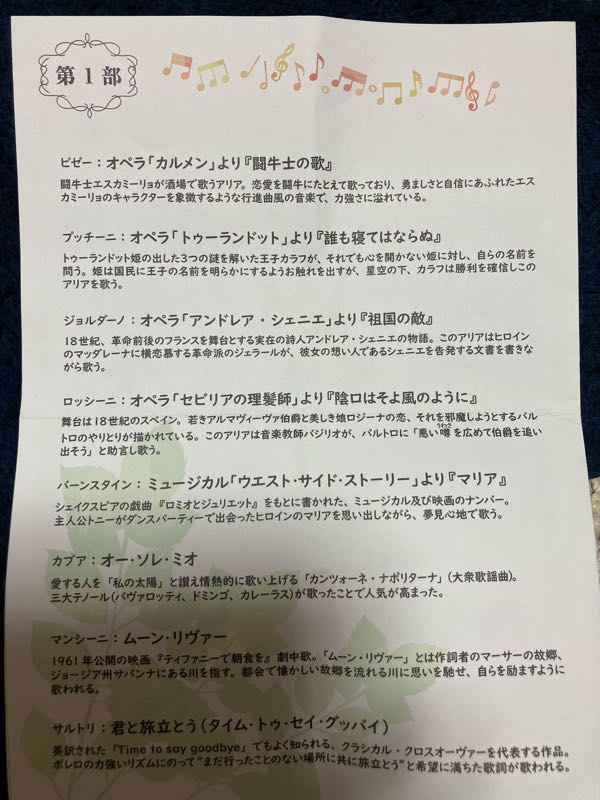 第1部
ビゼー：オペラ「カルメン」より『闘牛士の歌』
闘牛士エスカミーリョが酒場で歌うアリア。恋愛を闘牛にたとえて歌っており、勇ましさと自信にあふれたエス
カミーリョのキャラクターを象徴するような行進曲風の音楽で、力強さに溢れている。
プッチーニ：オペラ「トゥーランドット」より『誰も寝てはならぬ』
トゥーランドット姫の出した3つの謎を解いた王子カラフが、それでも心を開かない姫に対し、自らの名前を
問う。姫は国民に王子の名前を明らかにするようお触れを出すが、星空の下、カラフは勝利を確信しこの
アリアを歌う。
ジョルダーノ：オペラ「アンドレア・シェニエ」より『祖国の敵』
18世紀、革命前後のフランスを舞台とする実在の詩人アンドレア・シェニエの物語。このアリアはヒロイン
のマッダレーナに横恋慕する革命派のジェラールが、彼女の想い人であるシェニエを告発する文書を書きな
がら歌う。
ロッシーニ：オペラ「セビリアの理髪師」より『陰口はそよ風のように』
舞台は18世紀のスペイン。若きアルマヴィーヴァ伯爵と美しき娘ロジーナの恋、それを邪魔しようとするバル
トロのやりとりが描かれている。このアリアは音楽教師バジリオが、バルトロに「悪い噂(うわさ)を広めて伯爵を追い
出そう」と助言し歌う。
バーンスタイン：ミュージカル「ウエスト・サイド・ストーリー」より『マリア』
シェイクスピアの戯曲『ロミオとジュリエット』をもとに書かれた、ミュージカル及び映画のナンバー。
主人公トニーがダンスパーティーで出会ったヒロインのマリアを思い出しながら、夢見心地で歌う。
カプア：オー・ソレ・ミオ
愛する人を「私の太陽」と讃え情熱的に歌い上げる「カンツォーネ・ナポリターナ」（大衆歌謡曲）。
三大テノール（パヴァロッティ、ドミンゴ、カレーラス）が歌ったことで人気が高まった。
マンシーニ：ムーン・リヴァー
1961年公開の映画『ティファニーで朝食を』劇中歌。「ムーン・リヴァー」とは作詞者のマーサーの故郷、
ジョージア州サバンナにある川を指す。都会で懐かしい故郷を流れる川に思いを馳せ、自らを励ますように
歌われる。
サルトリ：君と旅立とう（タイム・トゥ・セイ・グッバイ）
英訳された「Time to say goodbye」でもよく知られる、クラシカル・クロスオーヴァーを代表する作品。
ボレロの力強いリズムにのって“まだ行ったことのない場所に共に旅立とう”と希望に満ちた歌詞が歌われる。